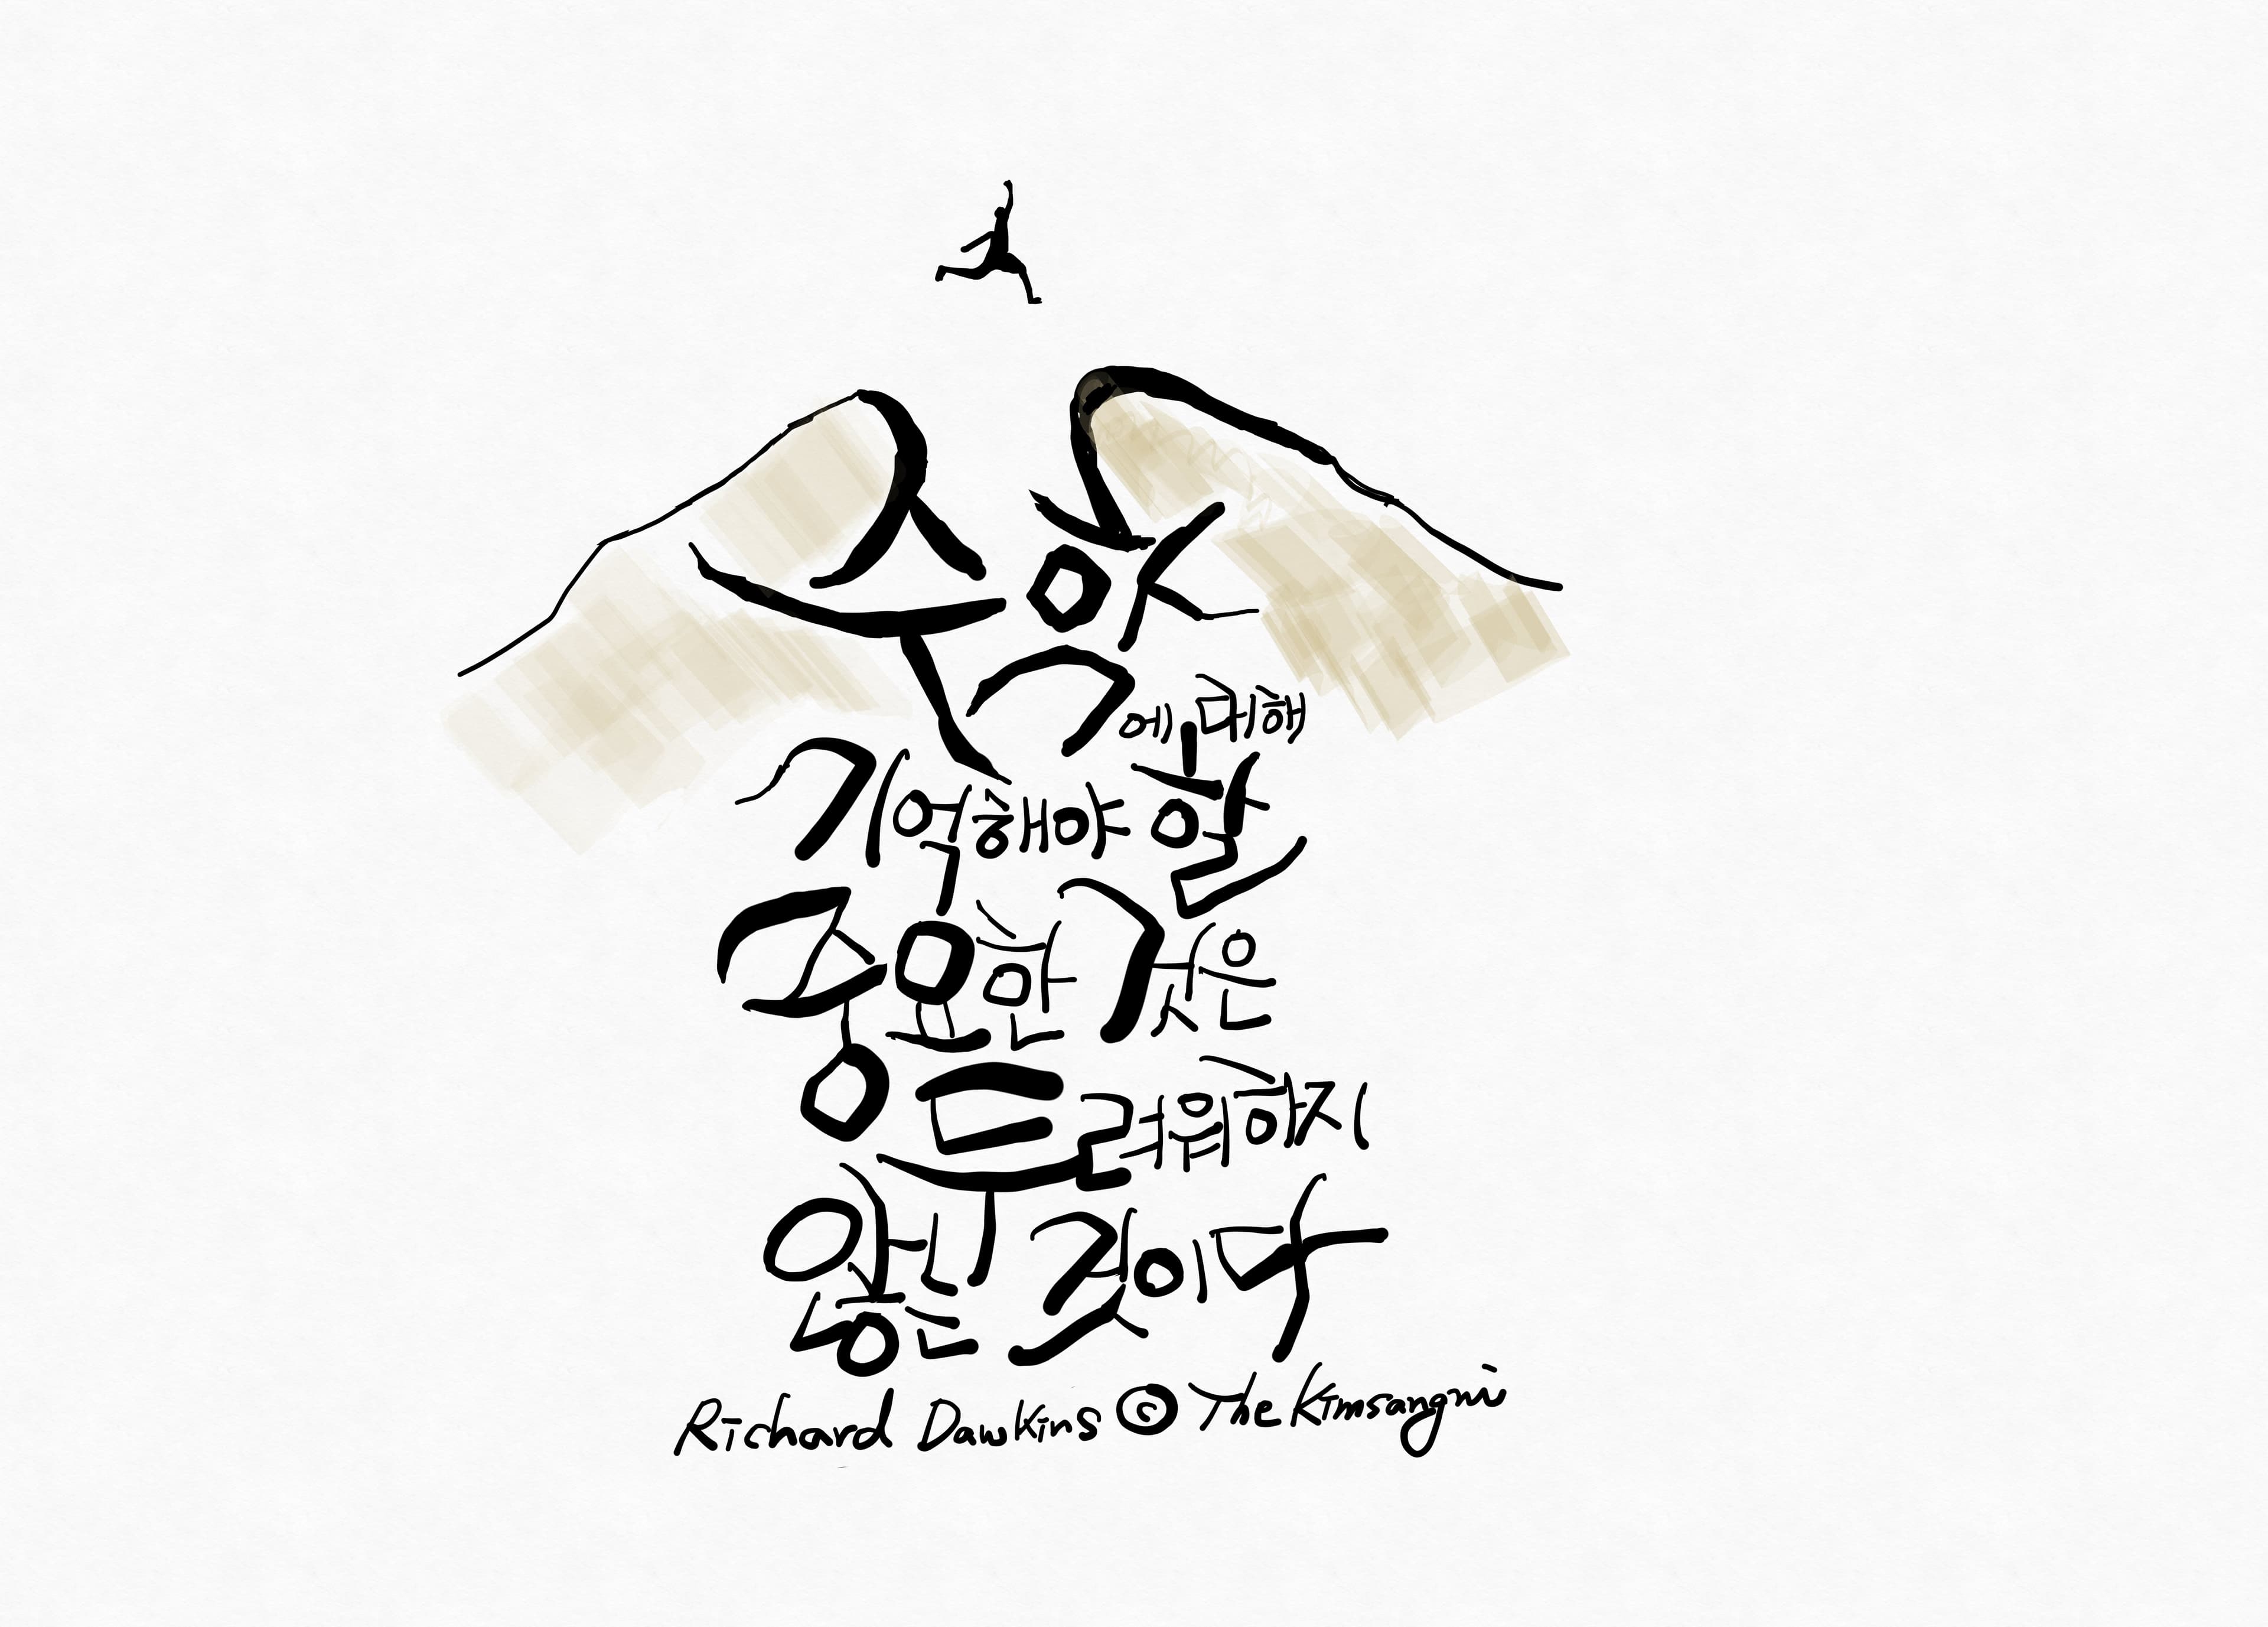 수학에 대해
기억해야 할
중요한 것은
두려워하지
않는 것이다
Richard Dawkins © The Kimsangmi